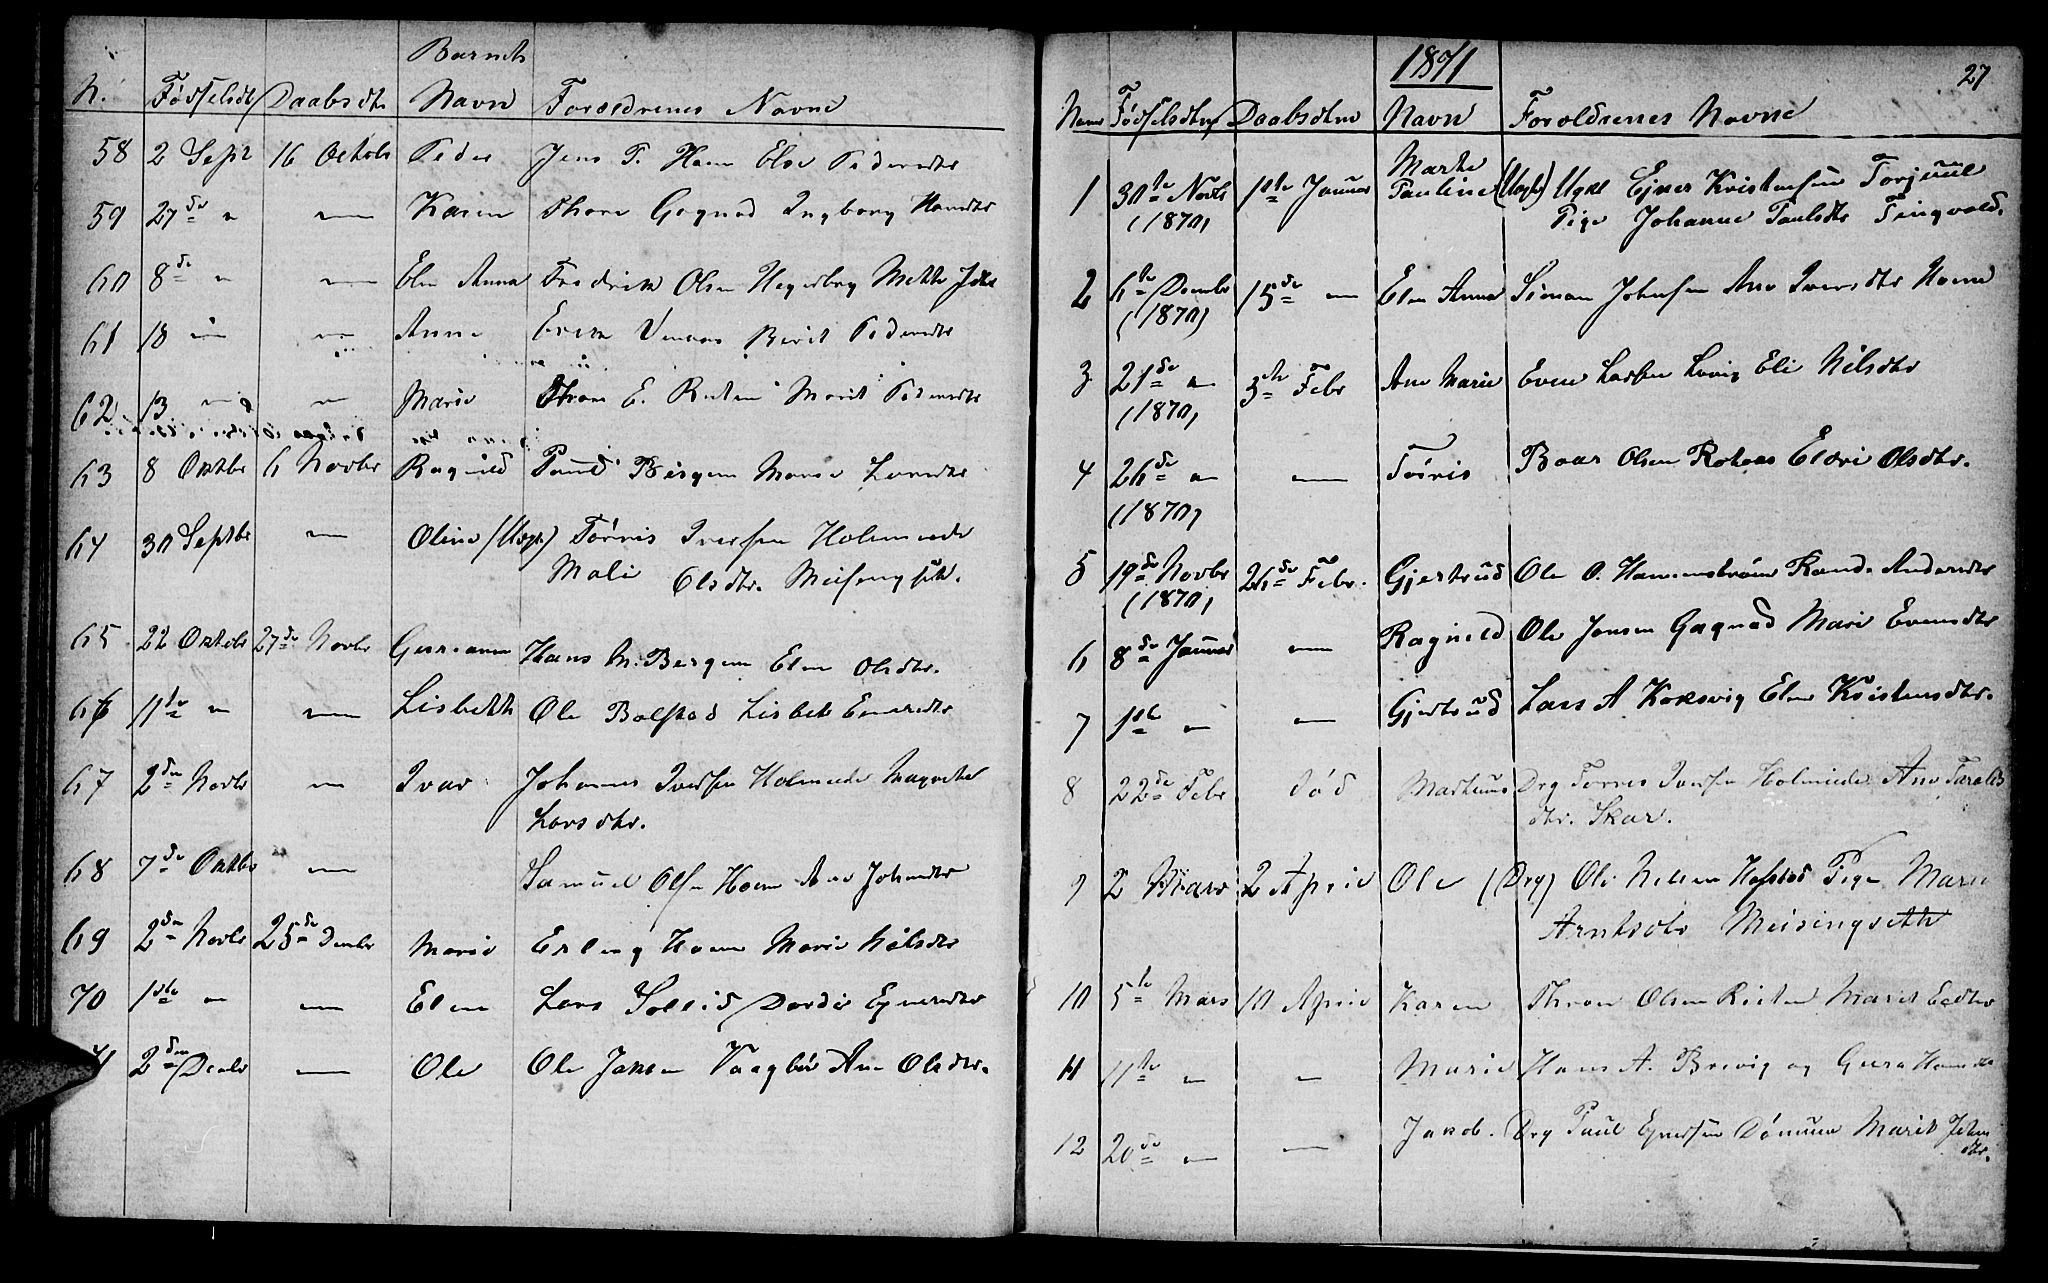 Barnets
N. Fødselsdt Daabsdt Navn Forældrenes Navne
58 2 Septr 16 Octobr Peder Jens P. Hoem Else Pedersdtr
59 27de " — Karen Thore Gagnad Ingborg Hansdtr
60 8de " — Elen Anna Fredrik Olsen Hegerberg Mette
61 18 — — Anne Even Berit Pedersdtr
62 13 — — Marie Thore E. Marit Pedersdtr
63 8 Oktbr 6 Novbr Ragnild Paul Bergem Larsdtr
64 30 Septbr — Oline (Uægt) Tørris Iversen Holmeide
Mali Olsdtr. Meisingset.
65 22 Oktobr 27de Novbr Hans M. Bergem Elen Olsdtr.
66 11te " — Lisbeth Ole Bolstad Lisbet Einersdtr
67 2den Novbr — Ivar Johannes Iversen Holmeide Magnhil
Larsdtr.
68 7de Oktbr — Samuel Olsen Hoem Ane Johnsdtr
69 2den Novbr 25de Decmbr Marie Erling Hoem Marie Nilsdtr
70 1ste " — Elen Lars Sollid Dordi Ejnersdtr
71 2den Decbr — Ole Ole Jakse Vaagbø Ane Olsdtr.
1871
27
Fødselsdtm Daabsdtm Navn Foroldrenes Navne
Marte
1 30te Novbr 1ste Januar Pauline (Uægt) Ugkl Ejner Kristensen Torjuul
(1870) Pige Johanne Paulsdtr Tingvold.
2 6te Decmbr 15de — Elen Anna Simon Johnsen Ane Iversdtr Hoem
(1870)
3 21de " 5te Febr Ane Marie Even Larsen Eli Nilsdtr
(1870)
4 26de " — Tørris Boar Olsen Olsdtr.
(1870)
5 19de Novbr 26de Febr. Gjertrud Ole O. Hammerstrøm Rand. Andersdtr
(1870)
6 8de Januar — Ragnild Ole Jensen Gagnad Mari Evensdtr
7 1ste " — Gjertrud Lars A Koksvig Elen Kristensdtr.
8 22de Febr død Martinus Drg Tørres Iversen Holmeide Ane Tarals
dtr. Skar.
9 2 Mars 2 April Ole (Drg) Ole Nilsen Hofstad Pige Marie
Arntsdtr Meisingseth
10 5te Mars 10 April Karen Thron Olsen Marit
11 11te " — Marie Hans A. Brevig og Guru Hansdtr
12 20de " — Jakob. Drg Paul Ejnersen Marit John
dtr.